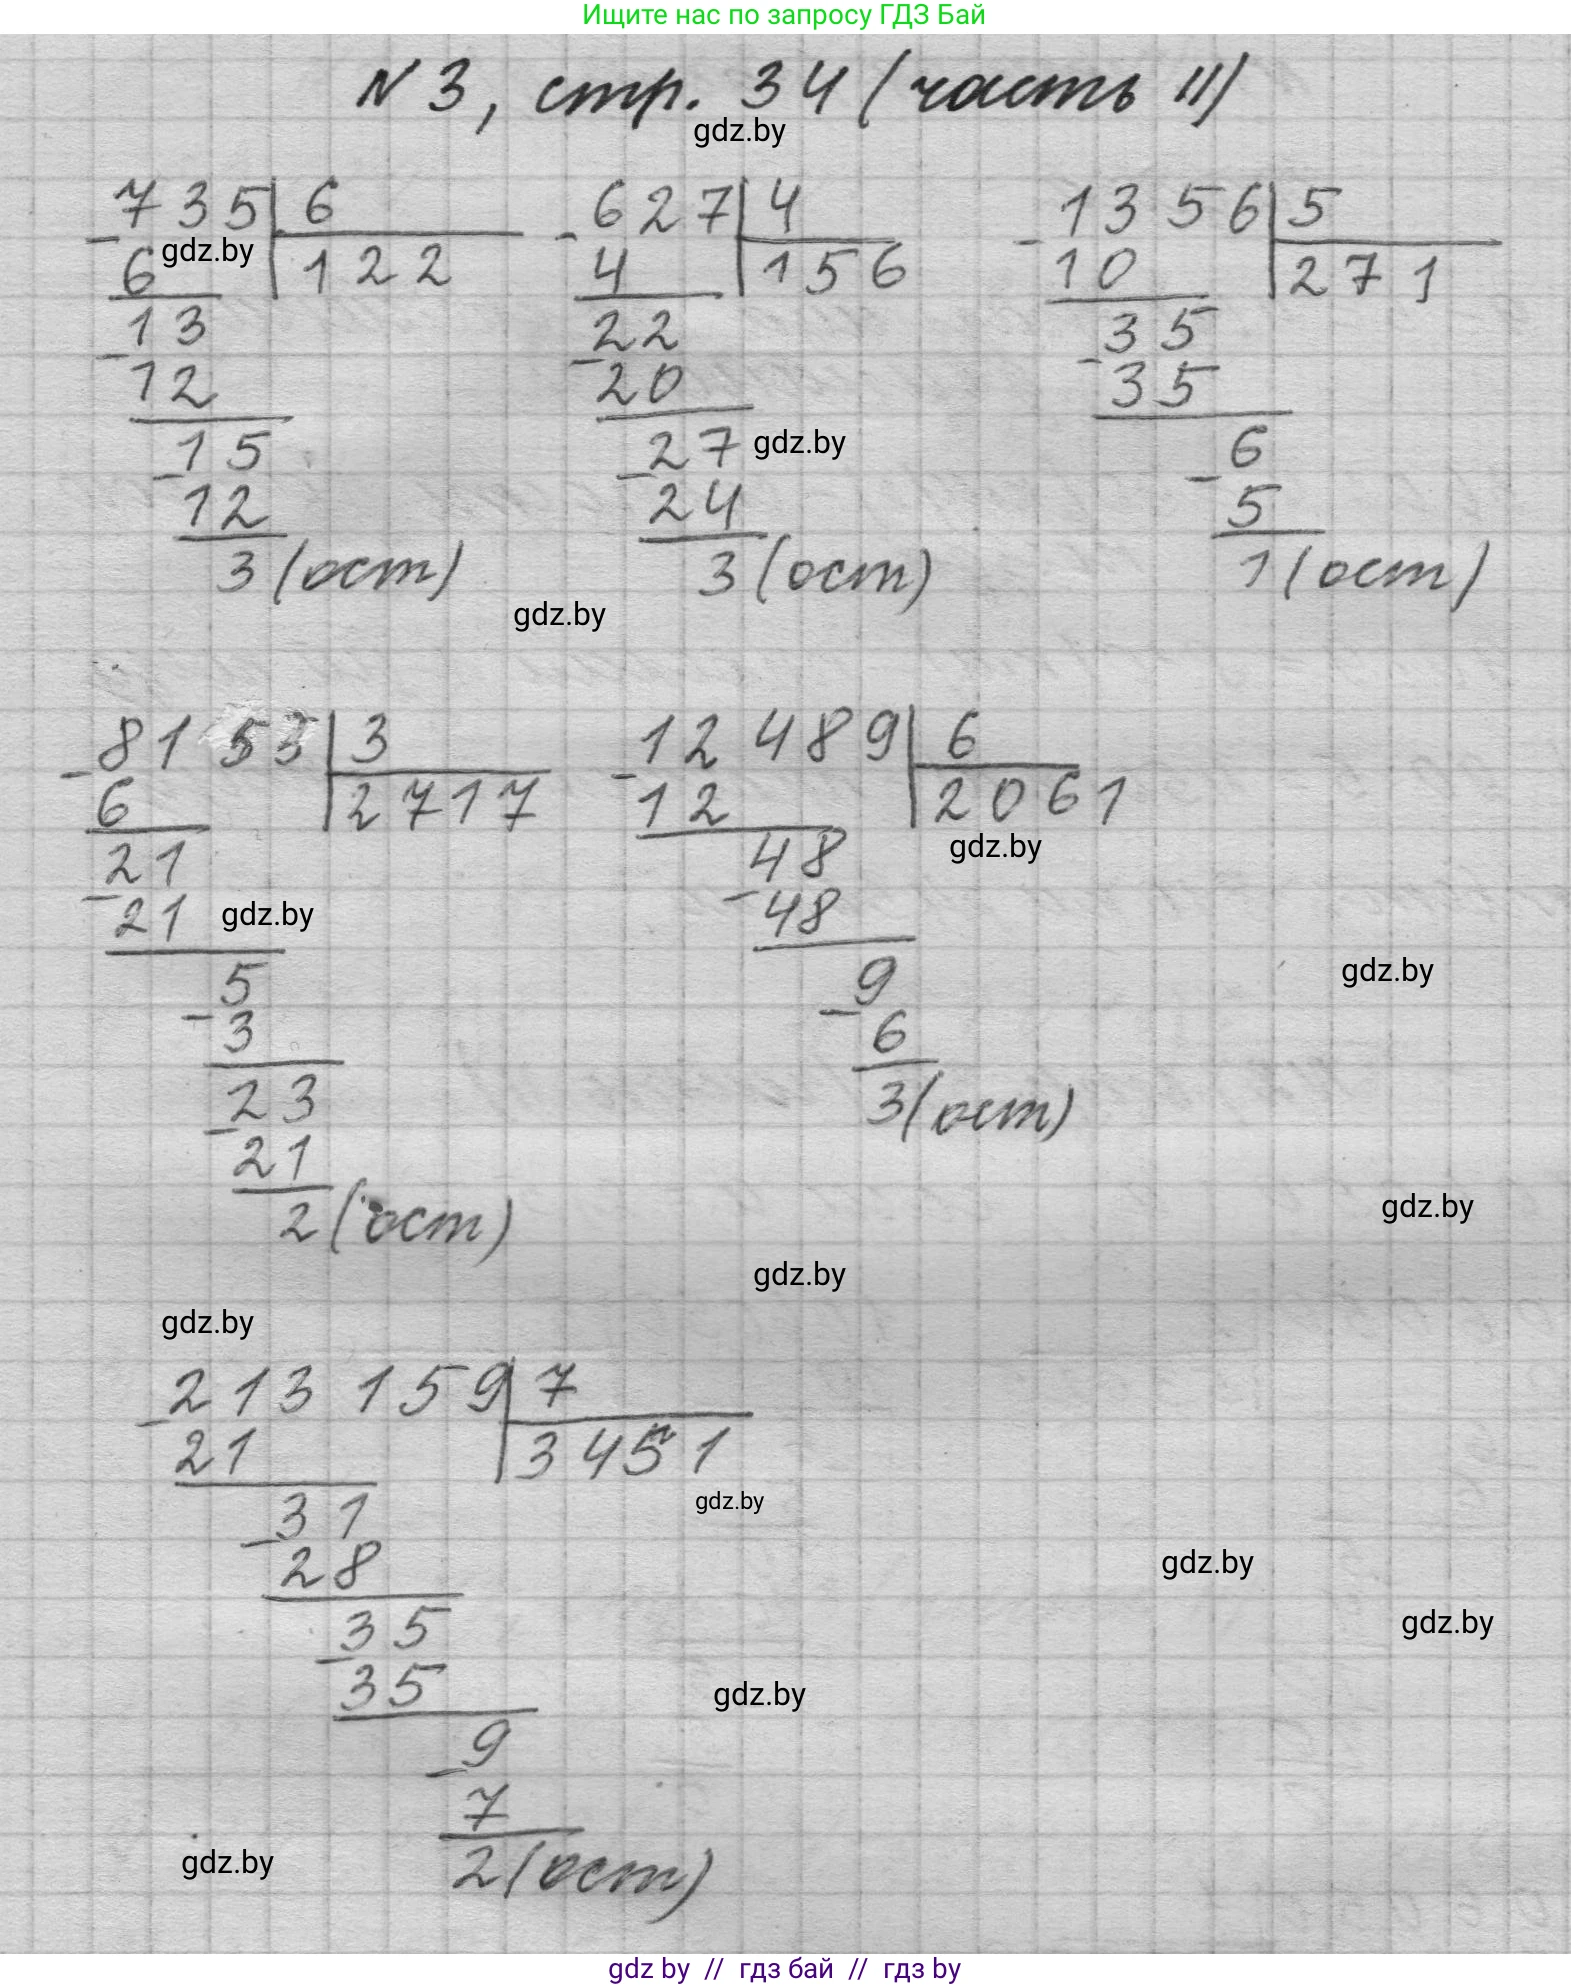 Ищите нас по запросу ГДЗ Бай
N 3, стр. 34 (часть II)
gdz.by
735 | 6   627 | 4   1356 | 5
- 6 gdz.by | 122   - 4 | 156   - 10 | 271
13   22   35
- 12   - 20   - 35
15   27 gdz.by   6
- 12   - 24   - 5
3 (ост)   3 (ост)   1 (ост)
gdz.by
8153 | 3   12489 | 6
- 6 | 2717   - 12 | 2061
21   48 gdz.by
- 21 gdz.by   - 48
5   9 gdz.by
- 3   - 6
23   3 (ост)
- 21
2 (ост) gdz.by
gdz.by
gdz.by
213159 | 7
- 21 | 3451
31 gdz.by
- 28 gdz.by
35 gdz.by
- 35 gdz.by
9
- 7
gdz.by 2 (ост)
gdz by // гдз бай // гдз by